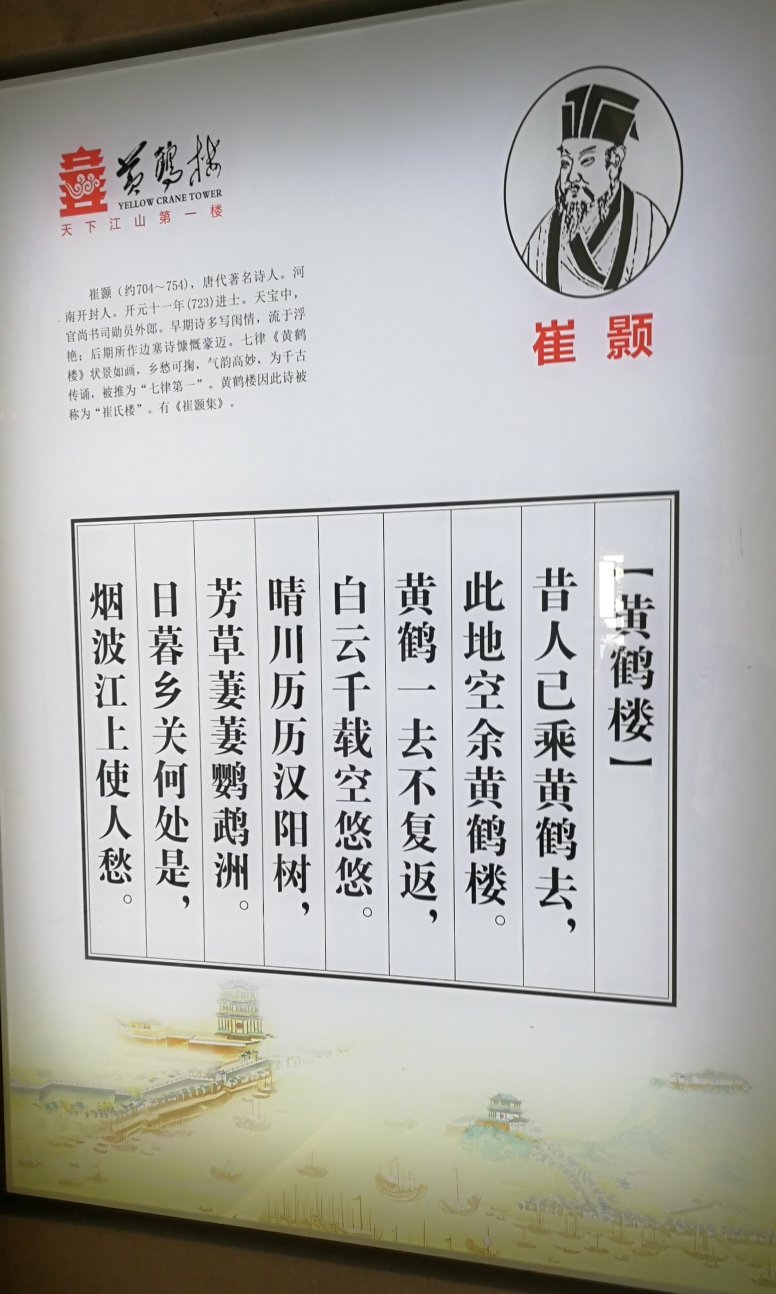 黄鹤楼
YELLOW CRANE TOWER
天下江山第一楼
崔颢
崔颢（约704～754），唐代著名诗人。河
南开封人。开元十一年(723)进士。天宝中，
官尚书司勋员外郎。早期诗多写闺情，流于浮
艳；后期所作边塞诗慷慨豪迈。七律《黄鹤
楼》状景如画，乡愁可掬，气韵高妙，为千古
传诵，被推为“七律第一”。黄鹤楼因此诗被
称为“崔氏楼”。有《崔颢集》。
【黄鹤楼】
昔人已乘黄鹤去，
此地空余黄鹤楼。
黄鹤一去不复返，
白云千载空悠悠。
晴川历历汉阳树，
芳草萋萋鹦鹉洲。
日暮乡关何处是，
烟波江上使人愁。